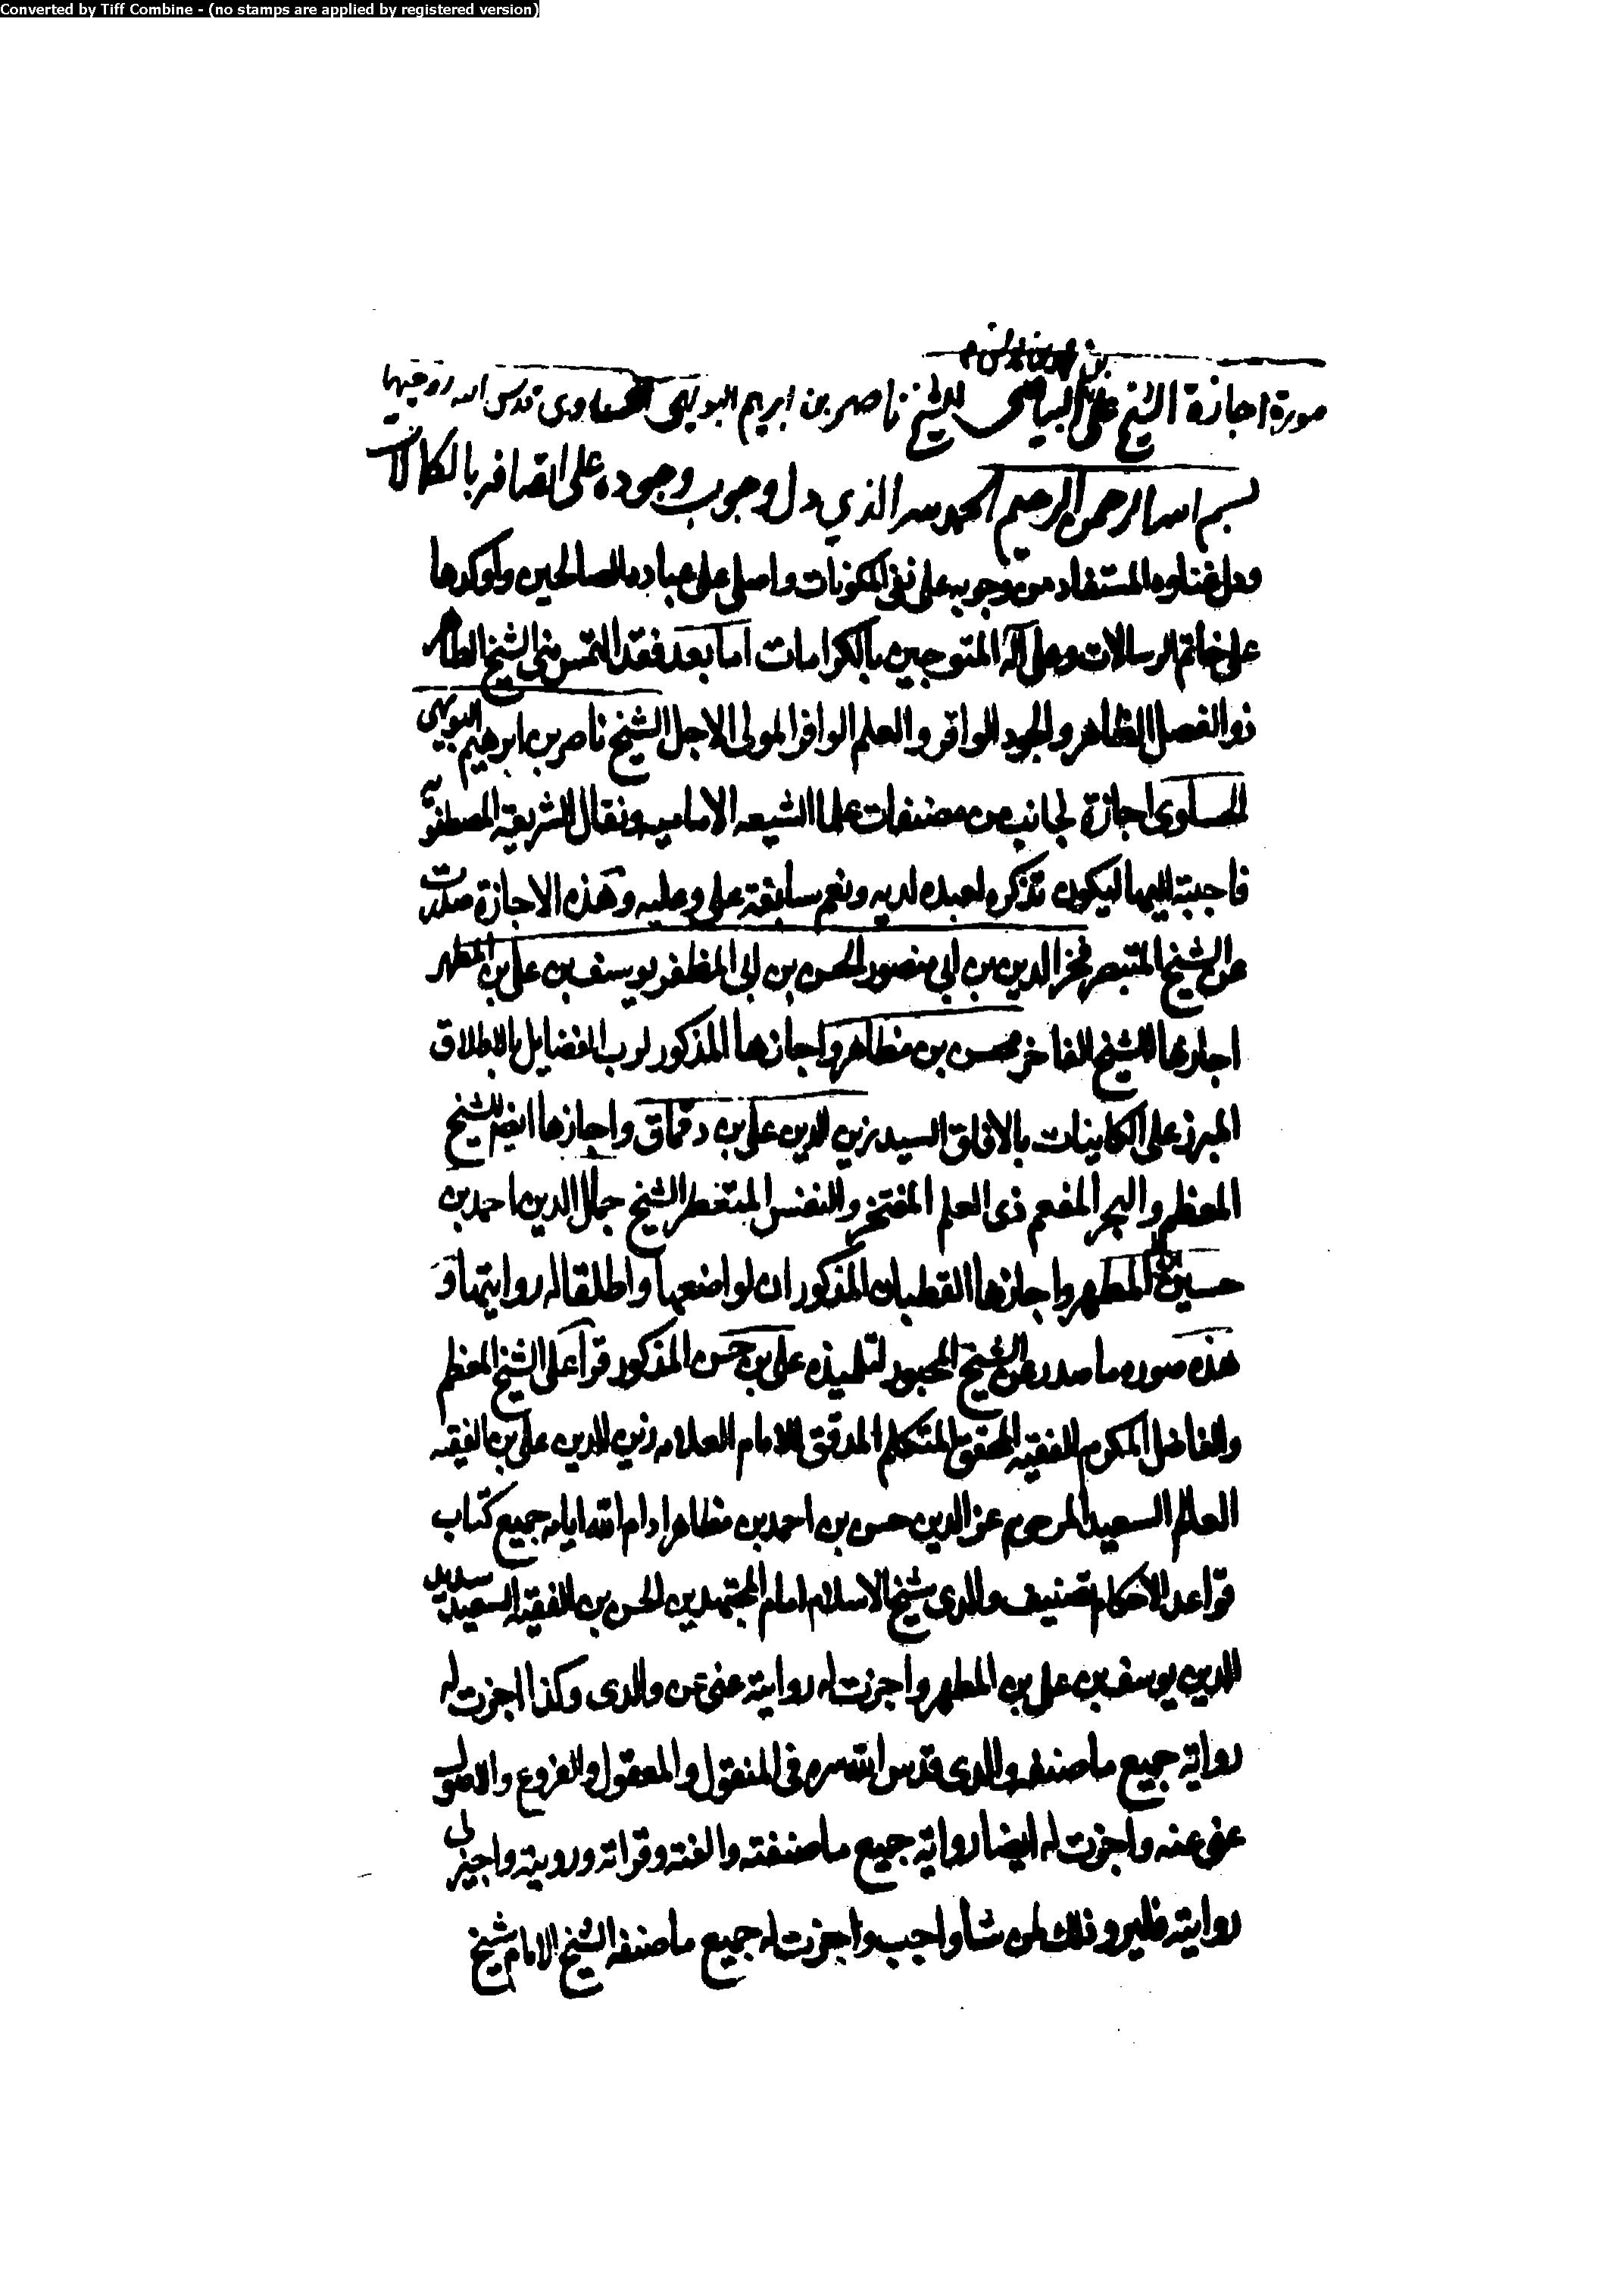 Converted by Tiff Combine - (no stamps are applied by registered version)
صورة اجازة الشيخ على البياضى للشيخ ناصر بن ابرهيم البويهى الحساوى قدس الله روحيهما
بسم الله الرحمن الرحيم الحمد لله الذي دل وجوب وجوده على اتصافه بالكمالات
ودل غناوه المستفاد من وجوبه على نفى المكونات واصلى على عباده الصالحين واوكدها
على خاتم الرسالات وعلى آله المتوجين بالكرامات اما بعد فقد التمس منى الشيخ الطاهر
ذو الفضل الظاهر والجود الوافر والعلم الوافر المولى الاجل الشيخ ناصر بن ابرهيم البويهى
الحساوى اجازة لجانب من مصنفات علما الشيعه الاماميه ونقال الشريعة المصطفويه
فاجبته اليها ليكون تذكره لعبده لديه ونعم سابقة على وعليه وهذه الاجازة صدرت
عن الشيخ المتبصر فخر الدين بن ابى منصور الحسن بن ابى المظفر يوسف بن على بن المطهر
اجازها للشيخ الفاخر محسن بن مظاهر واجازها المذكور لرب الفضايل بالاطلاق
المبرز على الكاينات بالافاق السيد زين الدين على بن دقماق واجازها ايضا للشيخ
المعظم والبحر المفعم ذى العلم المفتخر والنفس الشيخ جمال الدين احمد بن
حسين بن المطهر واجازها القطبان المذكوران لواضعها واطلقا له روايتها و
هذه صوره ما صدر عن الشيخ المحبور لتلميذه على بن حسن المذكور قرا على الشيخ المعظم
والفاضل المكرم الفقيه المحقق المتكلم المدقق الامام العلامه زين الدين على بن الفقيه
العالم السعيد المرحوم عز الدين حسن بن احمد بن مظاهر ادام الله ايامه جميع كتاب
قواعد الاحكام تصنيف والدى شيخ الاسلام امام المجتهدين الحسن بن الفقيه السعيد سديد
الدين يوسف بن على بن المطهر واجزت له روايته عنى عن والدى وكذا اجزت له
رواية جميع ما صنفه والدى قدس الله سره فى المنقول والمعقول والفروع والاصول
عنى عنه واجزت له ايضا رواية جميع ما صنفته والفته وقراته ورويته واجيز لى
روايته فليرو ذلك لمن شا واحب واجزت له جميع ما صنفه الشيخ الامام شيخ